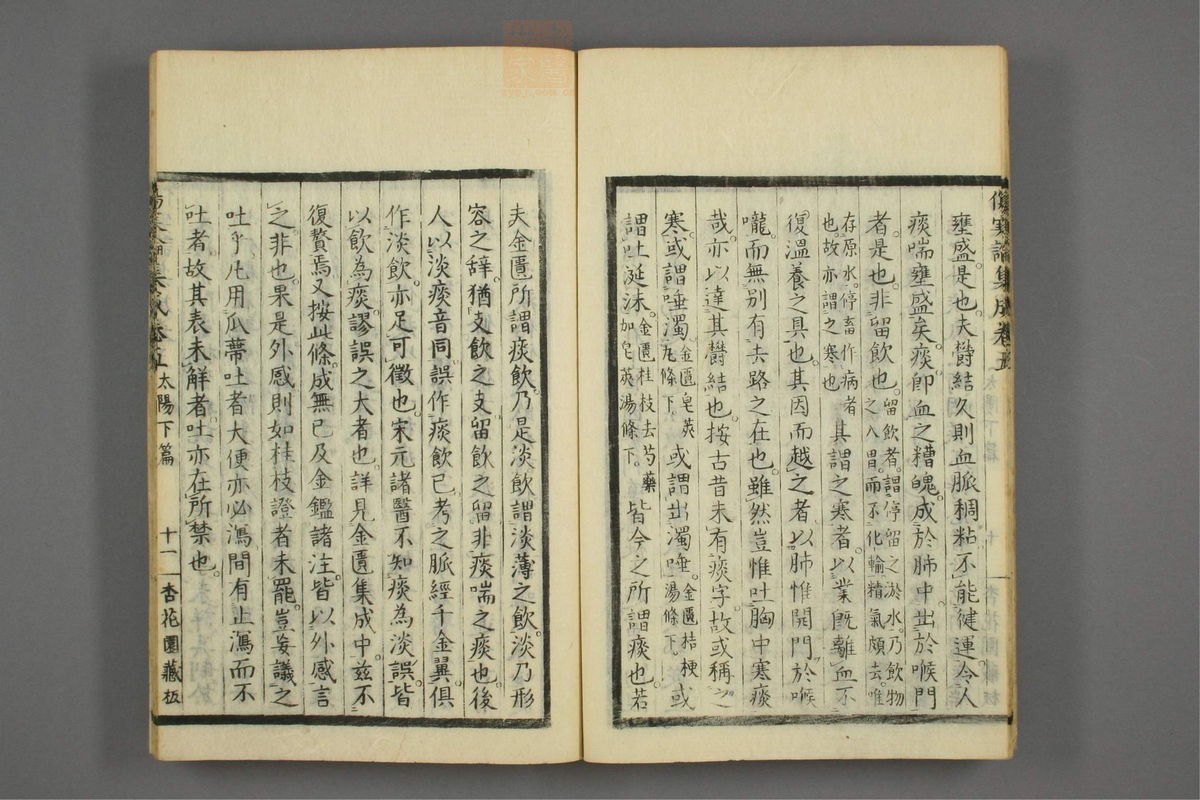 傷寒論集成卷五
壅盛是也夫欝結久則血脈稠粘不能健運令人
痰喘壅盛矣痰卽血之糟魄成於肺中出於喉門
者是也非留飲也留飲者謂停留之淤水乃飲物
之入胃而不化輸精氣頗去唯
存原水停畜作病者
也故亦謂之寒也
其謂之寒者以業旣離血不
復溫養之具也其因而越之者以肺惟開門於喉
嚨而無別有去路之在也雖然豈惟吐胸中寒痰
哉亦以達其欝結也按古昔未有痰字故或稱之
寒或謂唾濁金匱皂莢
丸條下
或謂出濁唾金匱桔梗
湯條下
或
謂吐涎沫金匱桂枝去芍藥
加皂莢湯條下
皆今之所謂痰也若
夫金匱所謂痰飲乃是淡飲謂淡薄之飲淡乃形
容之辭猶支飲之支留飲之留非痰喘之痰也後
人以淡痰音同誤作痰飲已考之脈經千金翼俱
作淡飲亦足可徵也宋元諸醫不知痰為淡誤皆
以飲為痰謬誤之大者也詳見金匱集成中兹不
復贅焉又按此條成無已及金鑑諸注皆以外感言
之非也果是外感則如桂枝證者未罷豈妄議之
吐乎凡用瓜蒂吐者大便亦必瀉間有止瀉而不
吐者故其表未解者吐亦在所禁也
太陽下篇
十一
杏花園藏板